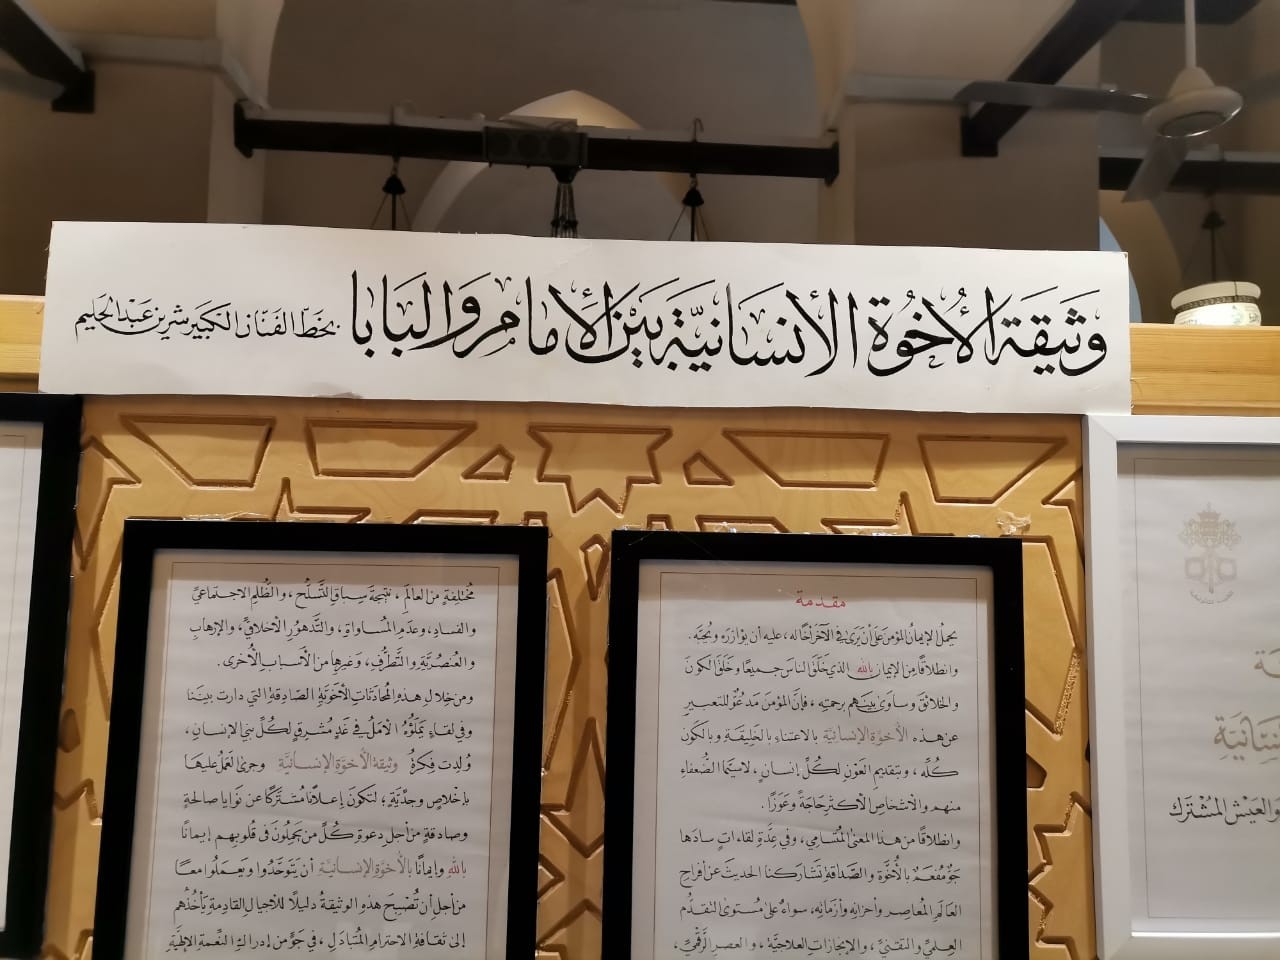 وثيقة الأخوة الأنسانية بين الأمام والبابا بخط الفنان الكبير شرين عبد الحليم
مقدمة
يحمل الإيمان المؤمن على أن يرى في الآخر أخًا له، عليه أن يؤازره ويحبه.
وانطلاقًا من الإيمان بالله الذي خلق الناس جميعًا وخلق الكون
والخلائق وساوى بينهم برحمته، فإن المؤمن مدعو للتعبير
عن هذه الأخوة الإنسانية بالاعتناء بالخليقة وبالكون
كله، وبتقديم العون لكل إنسان، لاسيما الضعفاء
منهم والأشخاص الأكثر حاجة وعوزًا.
وانطلاقًا من هذا المعنى المتسامي، وفي عدة لقاءات سادها
جو مفعم بالأخوة والصداقة تشاركنا الحديث عن أفراح
العالم المعاصر وأحزانه وأزماته، سواء على مستوى التقدم
العلمي والتقني، والإنجازات العلاجية، والعصر الرقمي،
مختلفة من العالم، نتيجة سباق التسلح، والظلم الاجتماعي
والفساد، وعدم المساواة، والتدهور الأخلاقي، والإرهاب
والعنصرية والتطرف، وغيرها من الأسباب الأخرى.
ومن خلال هذه المحادثات الأخوية الصادقة التي دارت بيننا
وفي لقاء يملؤه الأمل في غد مشرق لكل بني الإنسان،
ولدت فكرة وثيقة الأخوة الإنسانية وجرى العمل عليها
بإخلاص وجدية؛ لتكون إعلانًا مشتركًا عن نوايا صالحة
وصادقة من أجل دعوة كل من يحملون في قلوبهم إيمانًا
بالله وإيمانًا بالأخوة الإنسانية أن يتوحدوا ويعملوا معًا
من أجل أن تصبح هذه الوثيقة دليلًا للأجيال القادمة يأخذهم
إلى ثقافة الاحترام المتبادل، في جو من إدراك النعمة الإلهية
والعيش المشترك